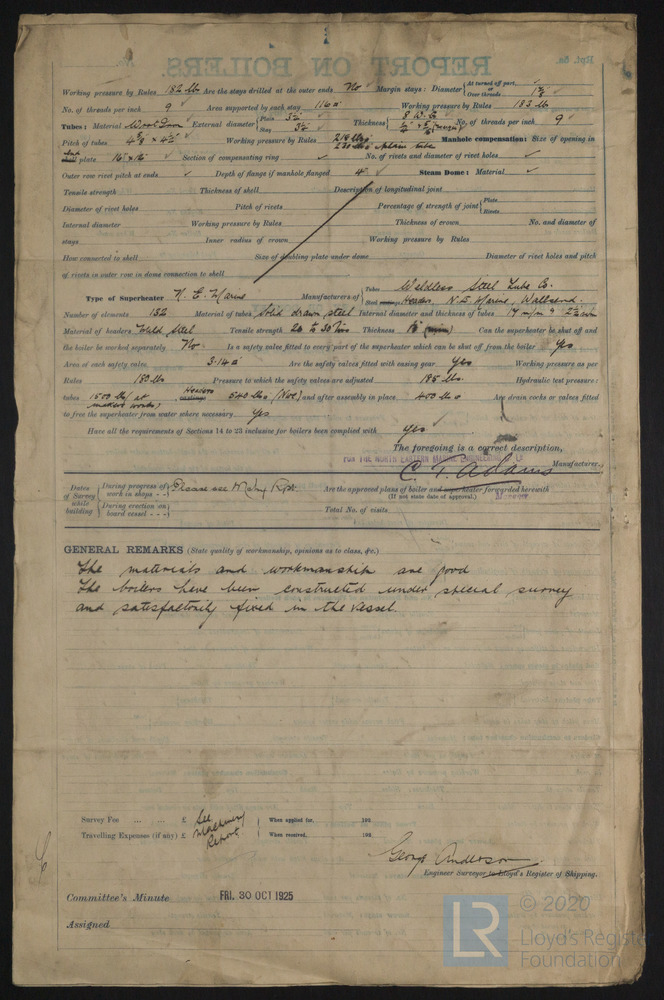 Rpt. 5a.
REPORT ON BOILERS.
Working pressure by Rules 182 lb Are the stays drilled at the outer ends No Margin stays: Diameter { At turned off part, or Over threads 1 7/8
No. of threads per inch 9 Area supported by each stay Working pressure by Rules 183 lb
Tubes: Material External diameter { Plain 3½ Stay 3½ Thickness { 8 W.G. No. of threads per inch 9
Pitch of tubes Working pressure by Rules Manhole compensation: Size of opening in
End shell plate 16 x 12 Section of compensating ring No. of rivets and diameter of rivet holes
Outer row rivet pitch at ends Depth of flange if manhole flanged 4" Steam Dome: Material
Tensile strength Thickness of shell Description of longitudinal joint
Diameter of rivet holes Pitch of rivets Percentage of strength of joint { Plate Rivets
Internal diameter Working pressure by Rules Thickness of crown No. and diameter of
stays Inner radius of crown Working pressure by Rules
How connected to shell Size of doubling plate under dome Diameter of rivet holes and pitch
of rivets in outer row in dome connection to shell
Type of Superheater N. E. Marine Manufacturers of { Tubes Weldless Steel Tube Co. Steel Headers, N.E. Marine, Wallsend.
Number of elements 152 Material of tubes Solid drawn steel Internal diameter and thickness of tubes 17 m/m &
Material of headers Weld Steel Tensile strength 26 to 30 Tons Thickness Can the superheater be shut off and
the boiler be worked separately No Is a safety valve fitted to every part of the superheater which can be shut off from the boiler Yes
Area of each safety valve 3.14 Are the safety valves fitted with easing gear Yes Working pressure as per
Rules 180 lb Pressure to which the safety valves are adjusted 185 lbs. Hydraulic test pressure:
tubes 1500 lb (at makers works) Headers castings 540 lbs (Nov) and after assembly in place 400 lb Are drain cocks or valves fitted
to free the superheater from water where necessary Yes
Have all the requirements of Sections 14 to 23 inclusive for boilers been complied with Yes
The foregoing is a correct description,
FOR THE NORTH EASTERN MARINE ENGINEERING
C. T. Adams Manufacturer.
Manager
Dates of Survey while building { During progress of work in shops - - Please see Mchy Rpt. Are the approved plans of boiler and superheater forwarded herewith (If not state date of approval.)
During erection on board vessel - - - Total No. of visits
GENERAL REMARKS (State quality of workmanship, opinions as to class, &c.)
The materials and workmanship are good
The boilers have been constructed under special survey
and satisfactorily fixed in the vessel.
Survey Fee ... ... £ See Machinery Report When applied for, 192
Travelling Expenses (if any) £ When received, 192
George Anderson
Engineer Surveyor to Lloyd's Register of Shipping.
Committee's Minute FRI. 30 OCT 1925
Assigned
LR © 2020
Lloyd's Register
Foundation